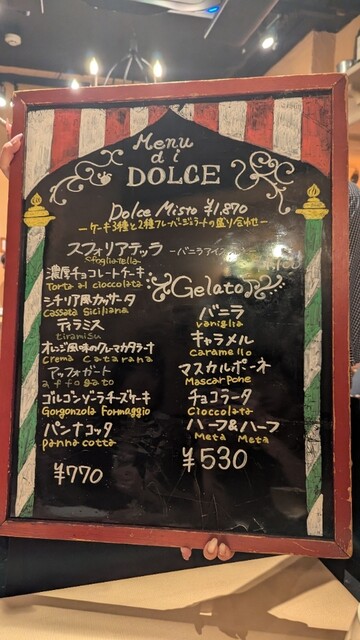 Menu
di
DOLCE
Dolce Misto ¥1,870
ーケーキ3種と2種フレーバージェラートの盛り合わせー
スフォリアテッラ ーバニラアイス
Sfogliatella
濃厚チョコレートケーキ
Torta al cioccolata
シチリア風カッサータ
Cassata Siciliana
ティラミス
tiramisu
オレンジ風味のクレマカタラーナ
Crema Catarana
アッフォガート
affogato
ゴルゴンゾーラチーズケーキ
Gorgonzola Formaggio
パンナコッタ
panna cotta
¥770
Gelato
バニラ
vaniglia
キャラメル
caramello
マスカルポーネ
Mascarpone
チョコラータ
Cioccolata
ハーフ&ハーフ
Meta Meta
¥530